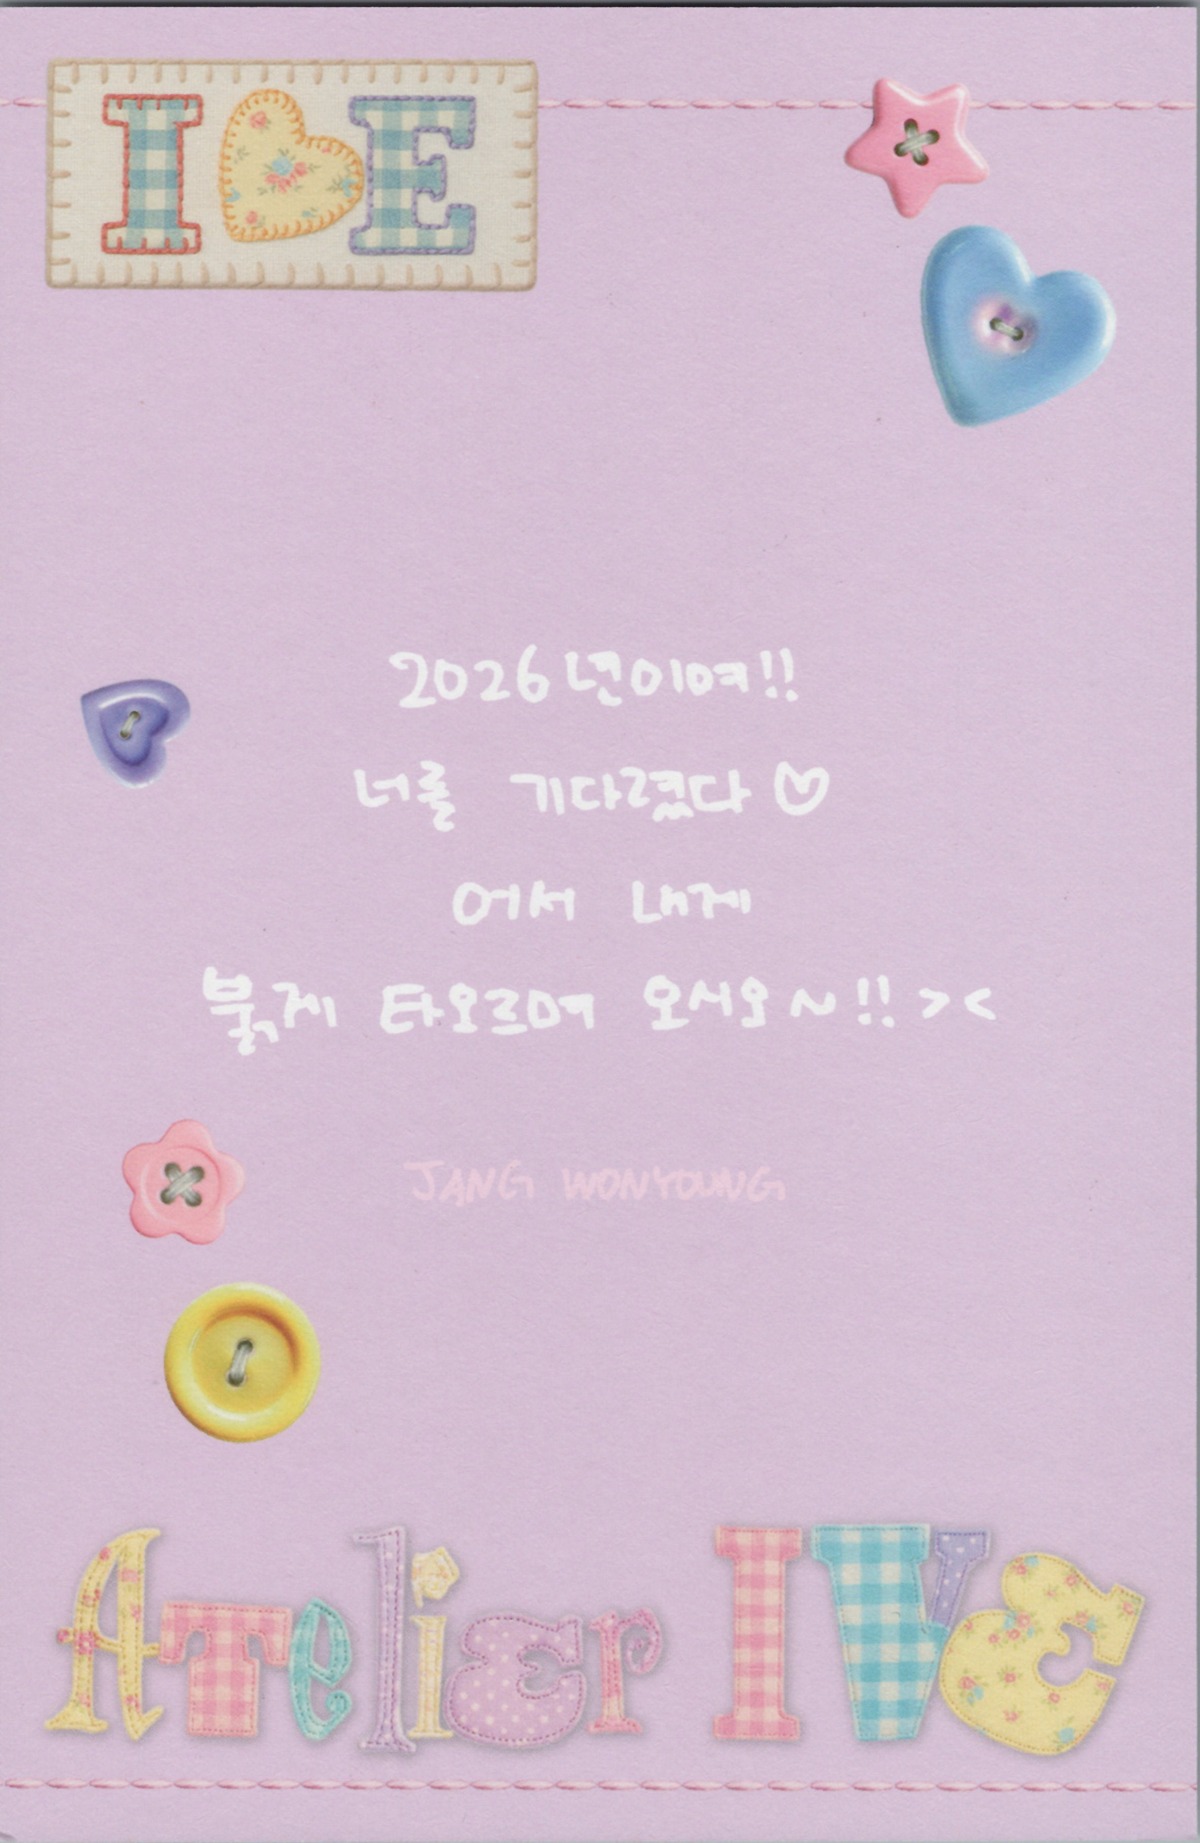 I♥E
2026년이여!!
너를 기다렸다♡
어서 내게
붉게 타오르며 오시오~!! ><
JANG WONYOUNG
Atelier IVE